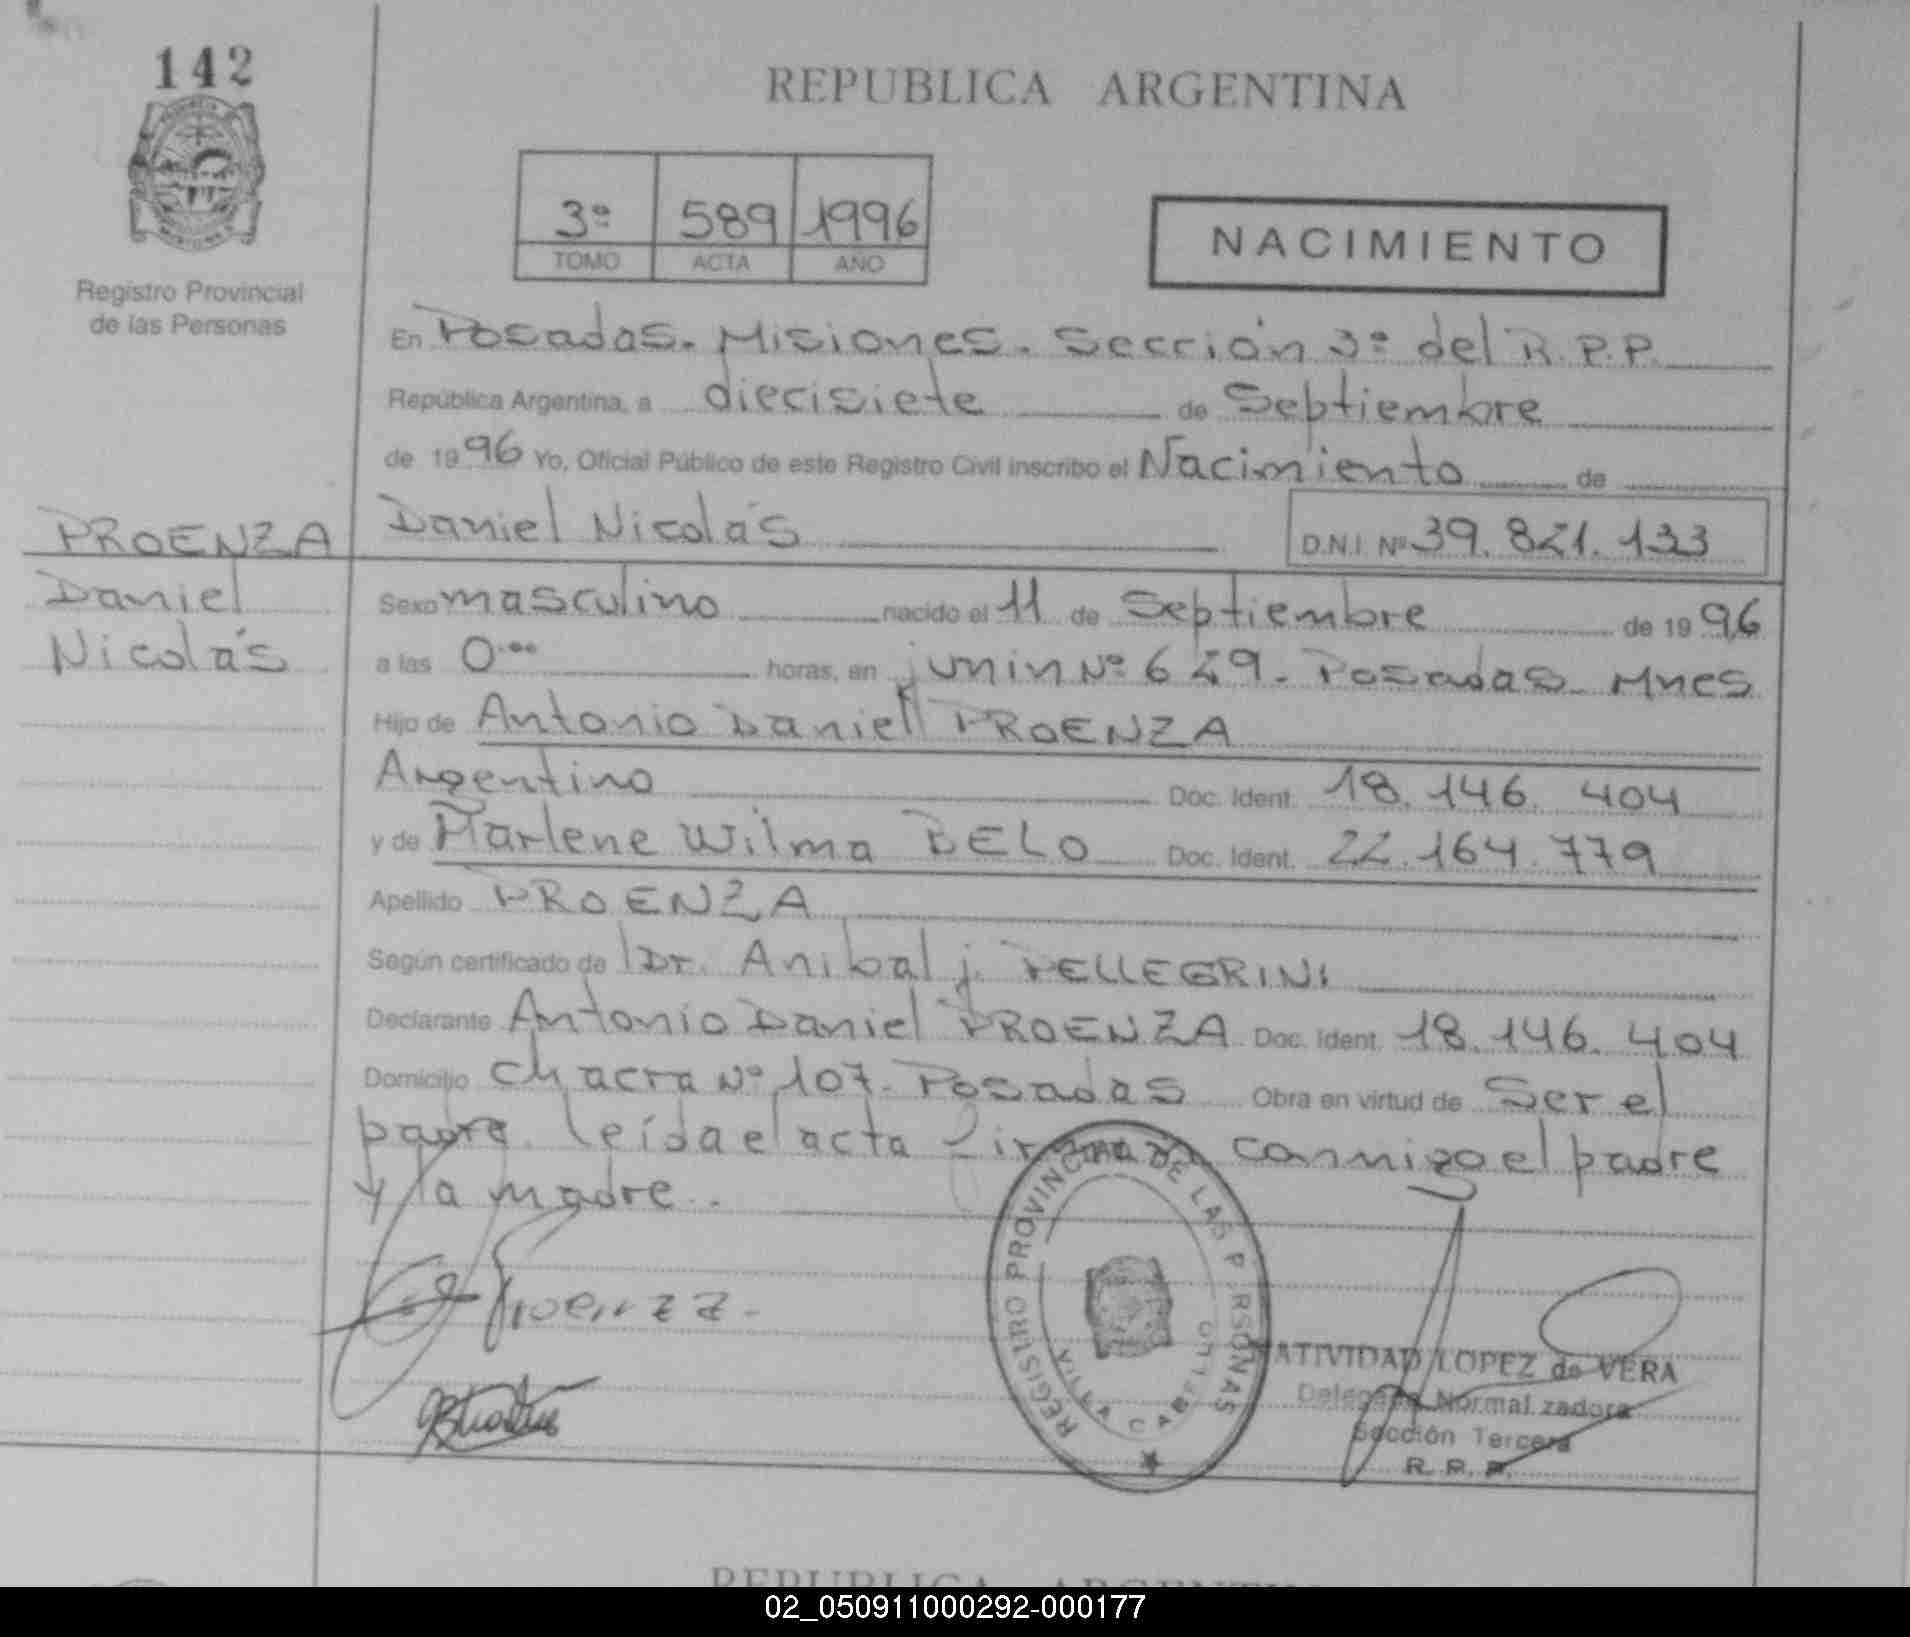 142
REPUBLICA ARGENTINA
3º 589 1996
TOMO ACTA AÑO
NACIMIENTO
Registro Provincial
de las Personas
En Posadas. Misiones. Sección 3º del R.P.P.
República Argentina, a diecisiete de Septiembre
de 1996 Yo, Oficial Público de este Registro Civil inscribo el Nacimiento de
PROENZA Daniel Nicolás D.N.I. Nº 39.821.133
Daniel
Nicolás
Sexo masculino nacido el 11 de Septiembre de 1996
a las 0.00 horas, en junin Nº 629. Posadas. Mnes
Hijo de Antonio Daniel PROENZA
Argentino Doc. Ident. 18.146.404
y de Marlene Wilma BELO Doc. Ident. 22.164.779
Apellido PROENZA
Según certificado de Dr. Anibal j. PELLEGRINI
Declarante Antonio Daniel PROENZA Doc. Ident. 18.146.404
Domicilio chacra Nº 107. Posadas Obra en virtud de Ser el
padre. leída el acta firman conmigo el padre
y la madre.
Proenza.
REGISTRO PROVINCIAL DE LAS PERSONAS
VILLA CABELLO
NATIVIDAD LOPEZ de VERA
Delegada Normalizadora
Sección Tercera
R. P. P.
REPUBLICA ARGENTINA
02_050911000292-000177